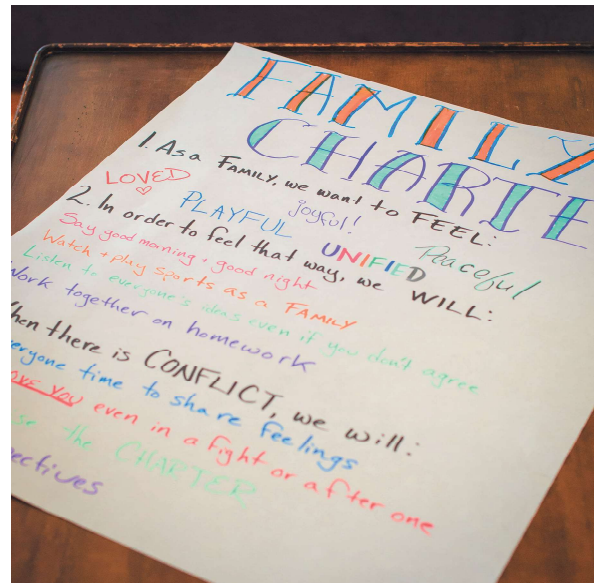 FAMILY
CHARTE
1. As a FAMILY, we want to FEEL:
LOVED PLAYFUL joyful! UNIFIED Peaceful
2. In order to feel that way, we WILL:
Say good morning + good night
Watch + play sports as a FAMILY
Listen to everyone's ideas even if you don't agree
Work together on homework
hen there is CONFLICT, we will:
eryone time to share feelings
OVE YOU even in a fight or after one
se the CHARTER
ectives